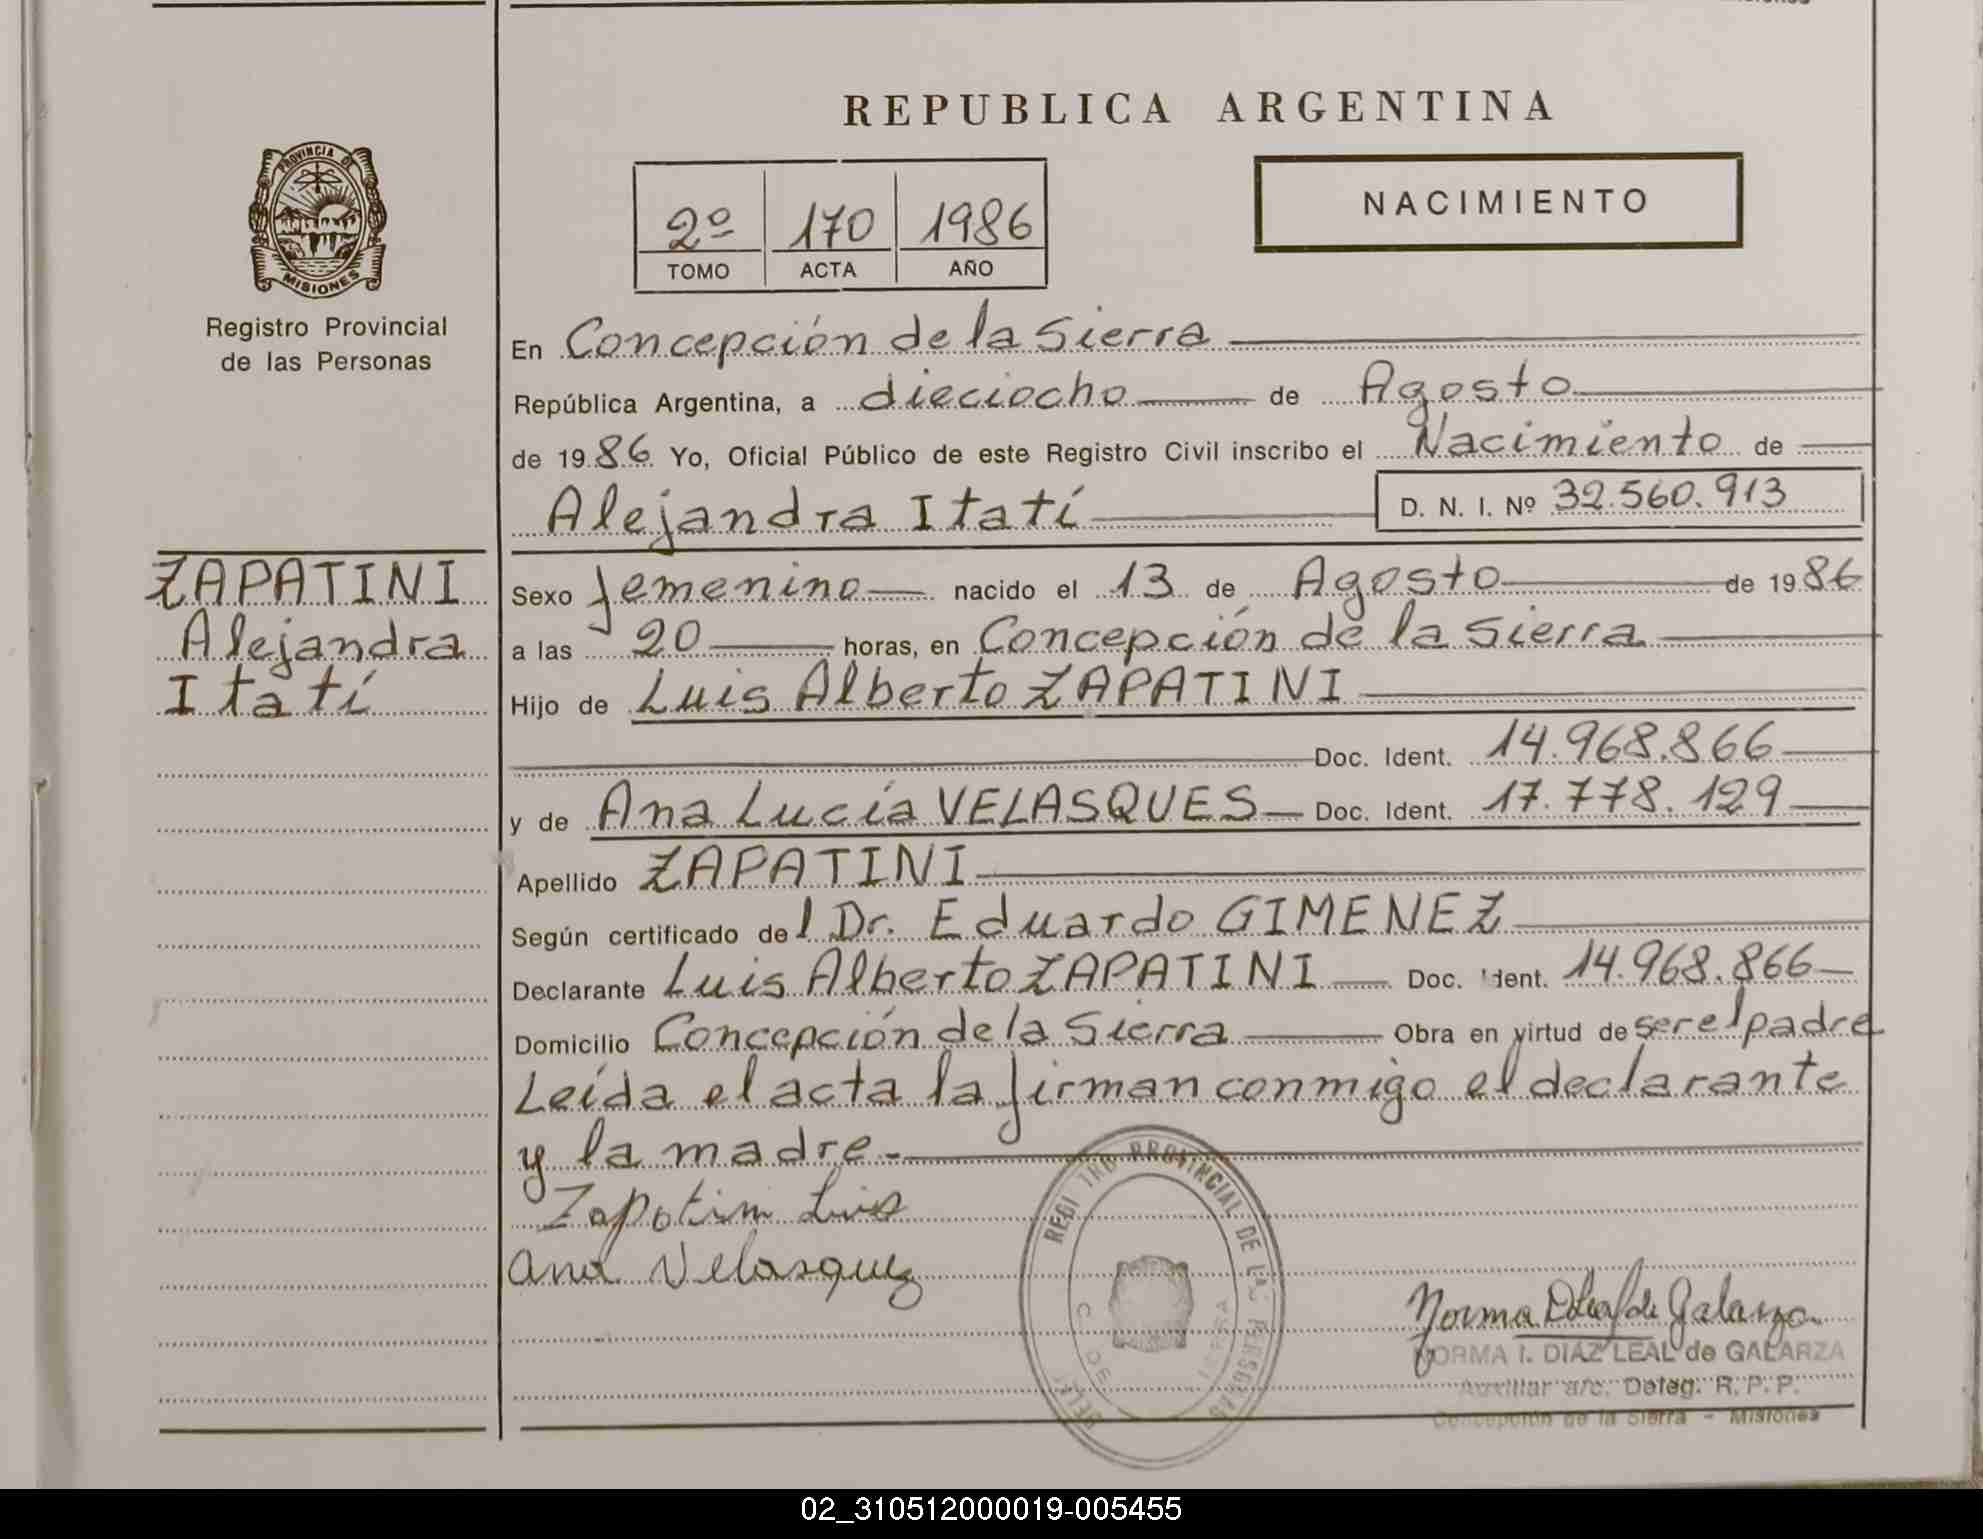 REPUBLICA ARGENTINA
PROVINCIA DE
MISIONES
Registro Provincial
de las Personas
2º 170 1986
TOMO ACTA AÑO
NACIMIENTO
En Concepción de la Sierra
República Argentina, a dieciocho de Agosto
de 1986 Yo, Oficial Público de este Registro Civil inscribo el Nacimiento de
Alejandra Itatí D. N. I. Nº 32.560.913
ZAPATINI
Alejandra
Itatí
Sexo femenino nacido el 13 de Agosto de 1986
a las 20 horas, en Concepción de la Sierra
Hijo de Luis Alberto ZAPATINI
Doc. Ident. 14.968.866
y de Ana Lucía VELASQUES Doc. Ident. 17.778.129
Apellido ZAPATINI
Según certificado del Dr. Eduardo GIMENEZ
Declarante Luis Alberto ZAPATINI Doc. Ident. 14.968.866
Domicilio Concepción de la Sierra Obra en virtud de ser el padre
Leída el acta la firman conmigo el declarante
y la madre.-
Zapatini Luis
Ana Velasquez
PROVINCIAL DE LAS PERSONAS
Norma D Leal de Galarza
NORMA I. DIAZ LEAL de GALARZA
Auxiliar a/c. Deleg. R. P. P.
Concepción de la Sierra - Misiones
02_310512000019-005455